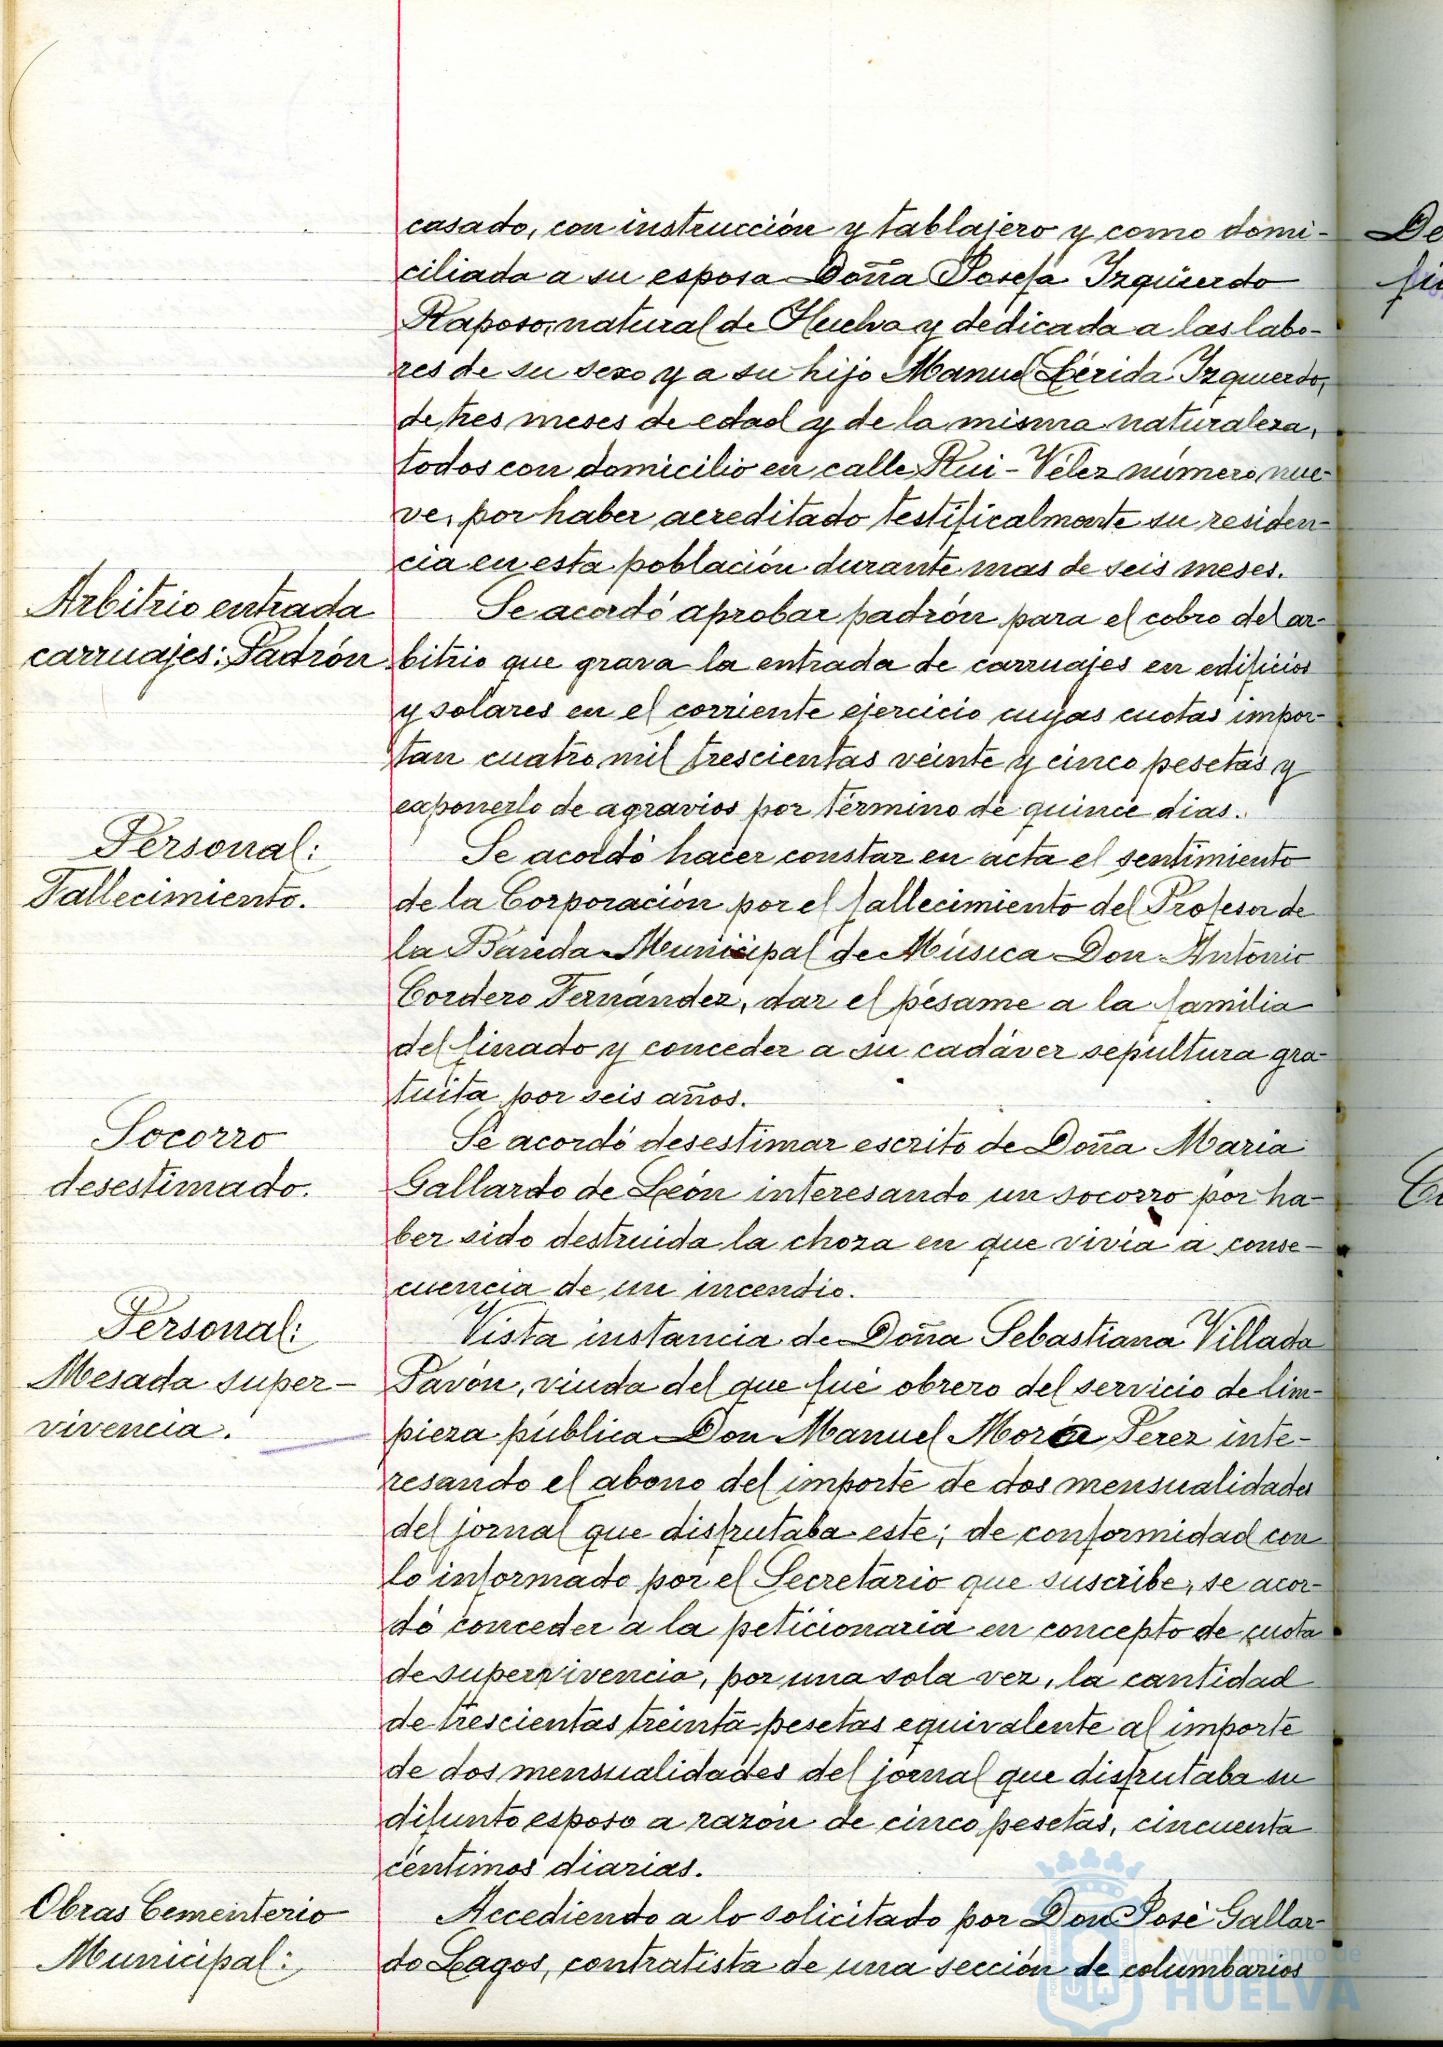 casado, con instrucción y tablajero y como domi-
ciliada a su esposa Doña Josefa Izquierdo
Raposo, natural de Huelva y dedicada a las labo-
res de su sexo y a su hijo Manuel Lérida Izquierdo,
de tres meses de edad y de la misma naturaleza,
todos con domicilio en calle Rui-Vélez número nue-
ve, por haber acreditado testificalmente su residen-
cia en esta población durante mas de seis meses.
Arbitrio entrada
carruajes: Padrón
Se acordó aprobar padrón para el cobro del ar-
bitrio que grava la entrada de carruajes en edificios
y solares en el corriente ejercicio cuyas cuotas impor-
tan cuatro mil trescientas veinte y cinco pesetas y
exponerlo de agravios por término de quince dias.
Personal:
Fallecimiento.
Se acordó hacer constar en acta el sentimiento
de la Corporación por el fallecimiento del Profesor de
la Banda Municipal de Música Don Antonio
Cordero Fernández, dar el pésame a la familia
del finado y conceder a su cadáver sepultura gra-
tuita por seis años.
Socorro
desestimado.
Se acordó desestimar escrito de Doña Maria
Gallardo de León interesando un socorro por ha-
ber sido destruida la choza en que vivia a conse-
cuencia de un incendio.
Personal:
Mesada super-
vivencia.
Vista instancia de Doña Sebastiana Villada
Pavón, viuda del que fué obrero del servicio de lim-
pieza pública Don Manuel Mora Perez inte-
resando el abono del importe de dos mensualidades
del jornal que disfrutaba este; de conformidad con
lo informado por el Secretario que suscribe, se acor-
dó conceder a la peticionaria en concepto de cuota
de supervivencia, por una sola vez, la cantidad
de trescientas treinta pesetas equivalente al importe
de dos mensualidades del jornal que disfrutaba su
difunto esposo a razón de cinco pesetas, cincuenta
céntimos diarias.
Obras Cementerio
Municipal:
Accediendo a lo solicitado por Don José Gallar-
do Lagos, contratista de una sección de columbarios
Ayuntamiento de
HUELVA